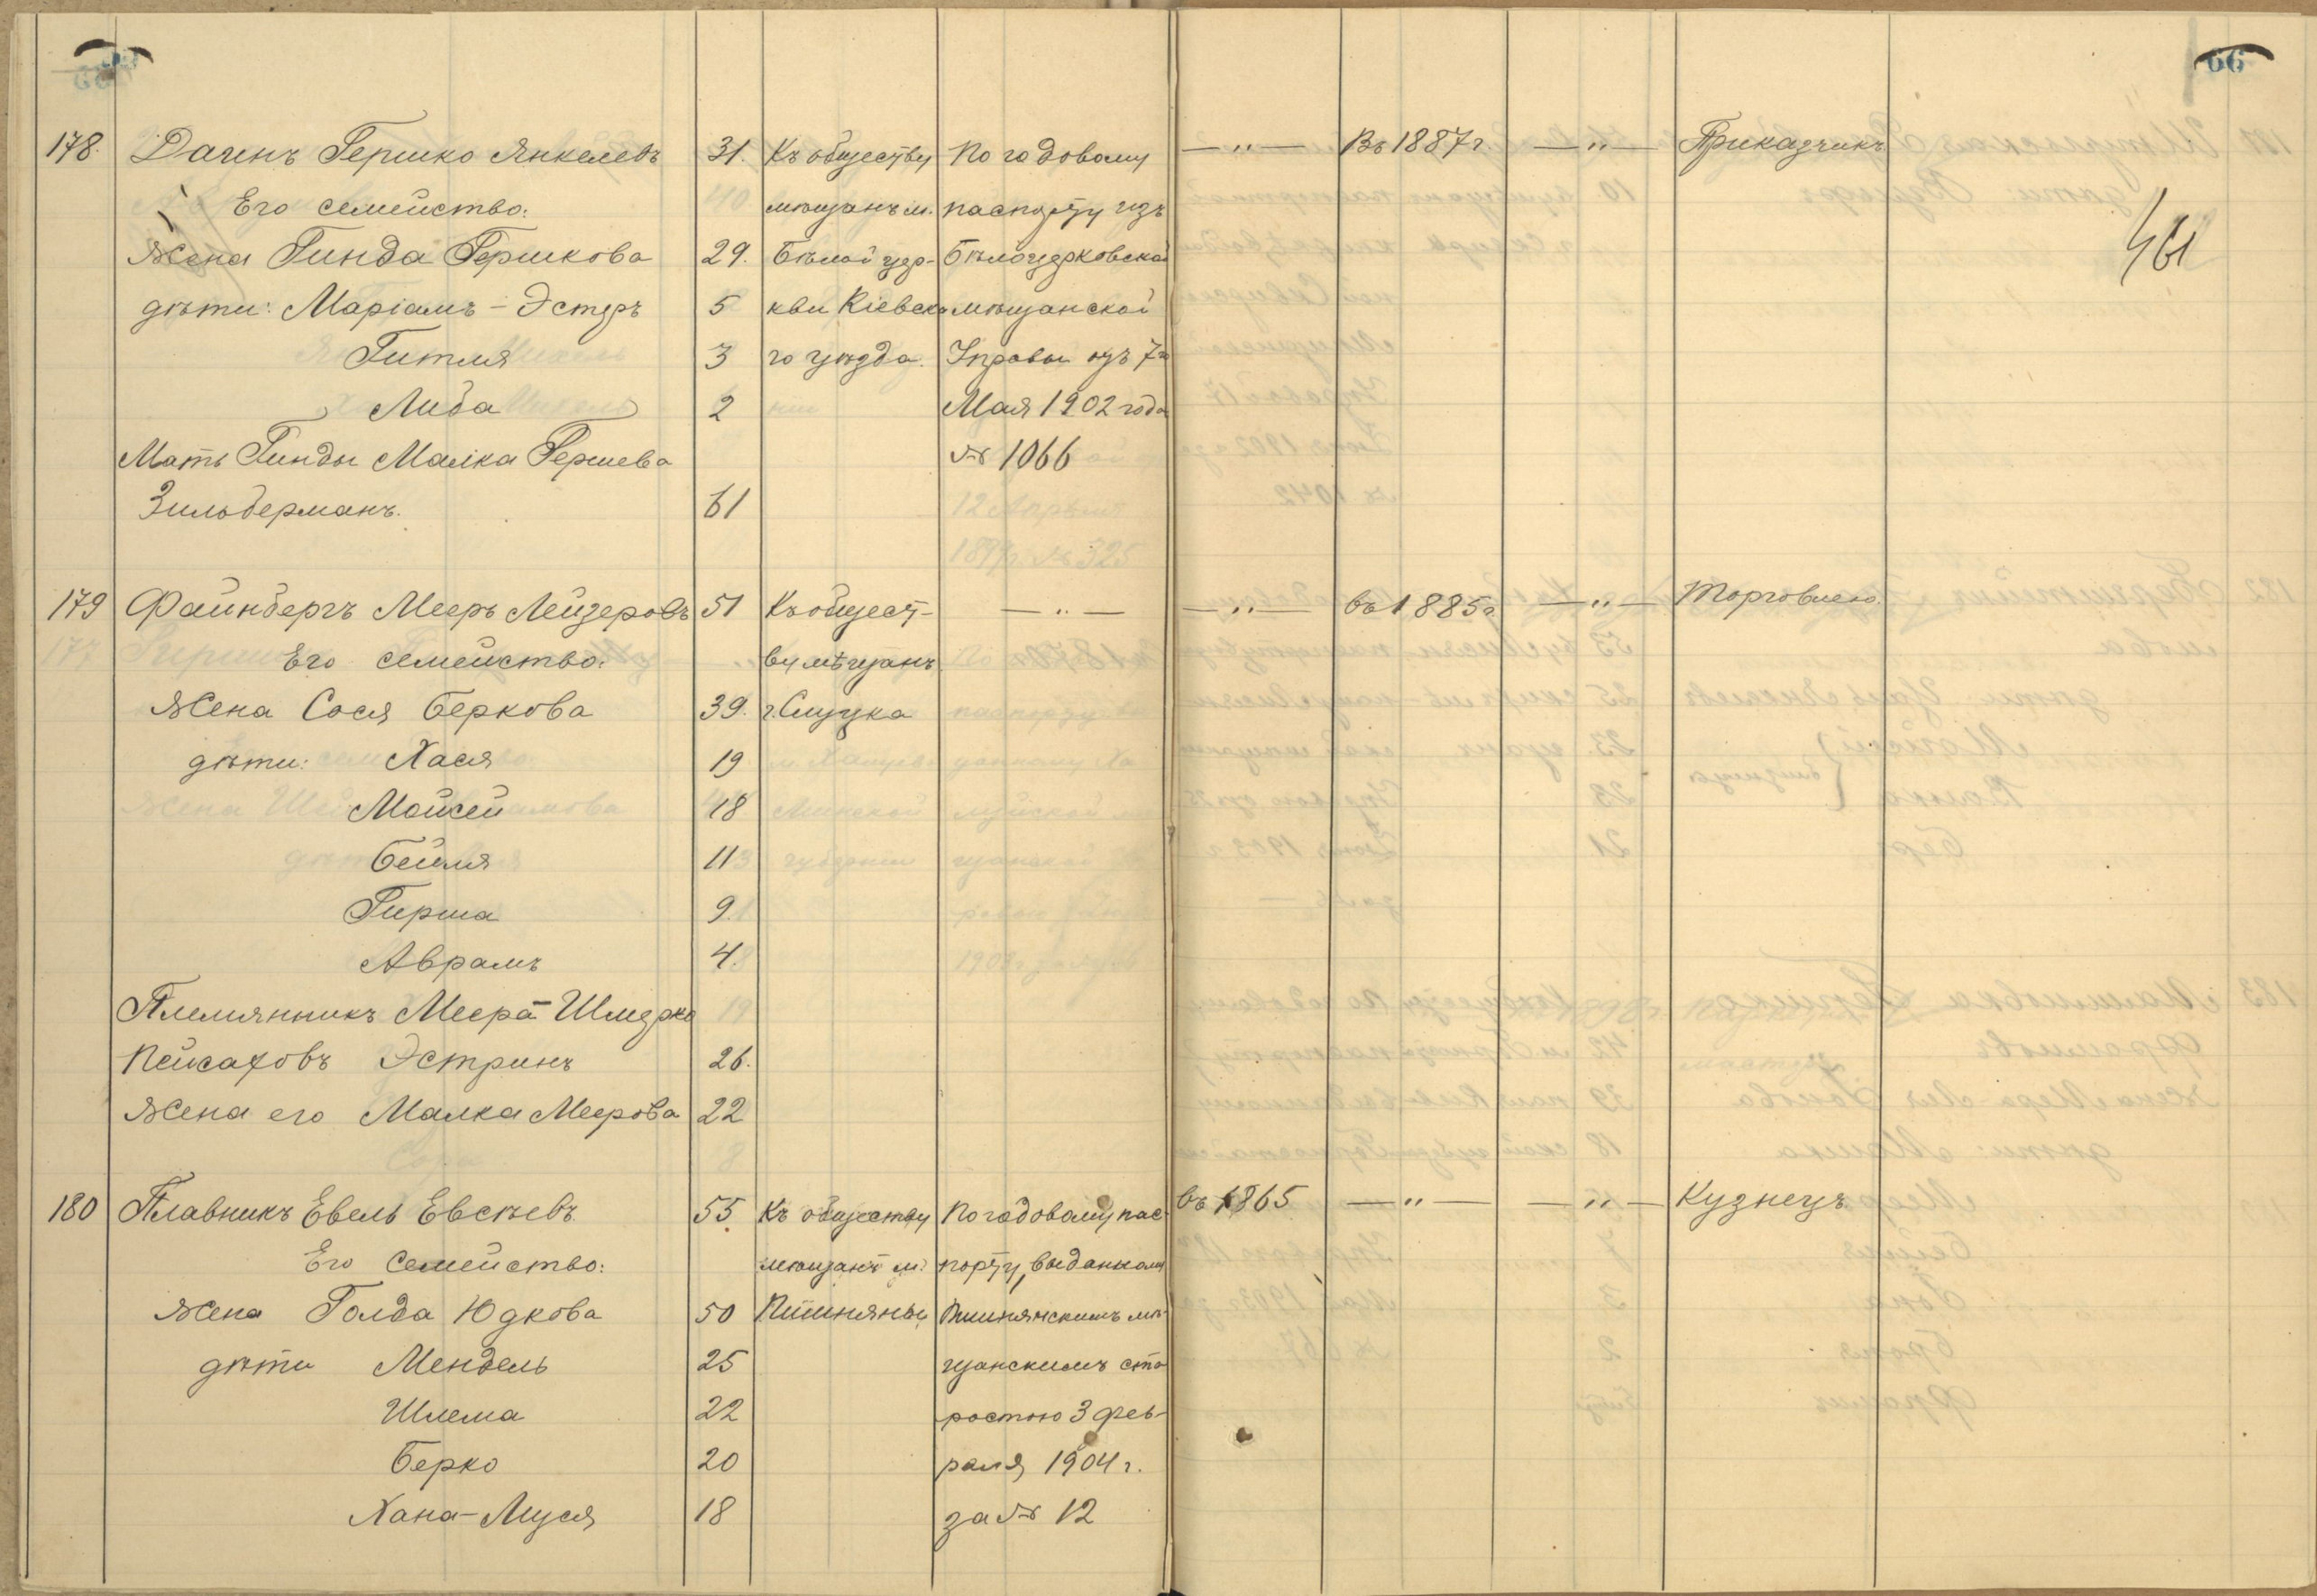 66
178. Даченъ Гершко Янкелевъ 31. Къ обществу По годовому —"— Въ 1887 г. —"— Приказчикъ
Его семейство: мѣщанъ м. паспорту изъ
Жена Гинда Гершкова 29. Бѣлой цер- Бѣлоцерковской
461
дѣти: Маріамъ-Эстеръ 5 кви Кіевска- мѣщанской
Гитля 3 го уѣзда. Управы отъ 7го
Либа 2 Мая 1902 года
Мать Гинды Малка Гершева № 1066
Зильберманъ. 61
179 Файнбергъ Мееръ Лейзеровъ 51 Къ общест- —"— —"— въ 1885 г. —"— Торговлею.
Его семейство: ву мѣщанъ
Жена Сося Беркова 39. г. Слуцка
дѣти: Хася 19
Мойсей 18
Бейля 11
Гирша 9.
Аврамъ 4.
Племянникъ Меера Шмерко
Пейсаховъ Эстринъ 26.
Жена его Малка Меерова 22
180 Плавникъ Евель Евсѣевъ 55. Къ обществу По годовому пас- въ 1865 —"— —"— Кузнецъ
Его Семейство: мѣщанъ м. порту, выданному
Жена Голда Юдкова 50 мѣ-
дѣти Мендель 25 щанскимъ ста-
Шлема 22 ростою 3 фев-
Берко 20 раля 1904 г.
Хана-Муся 18 за № 12